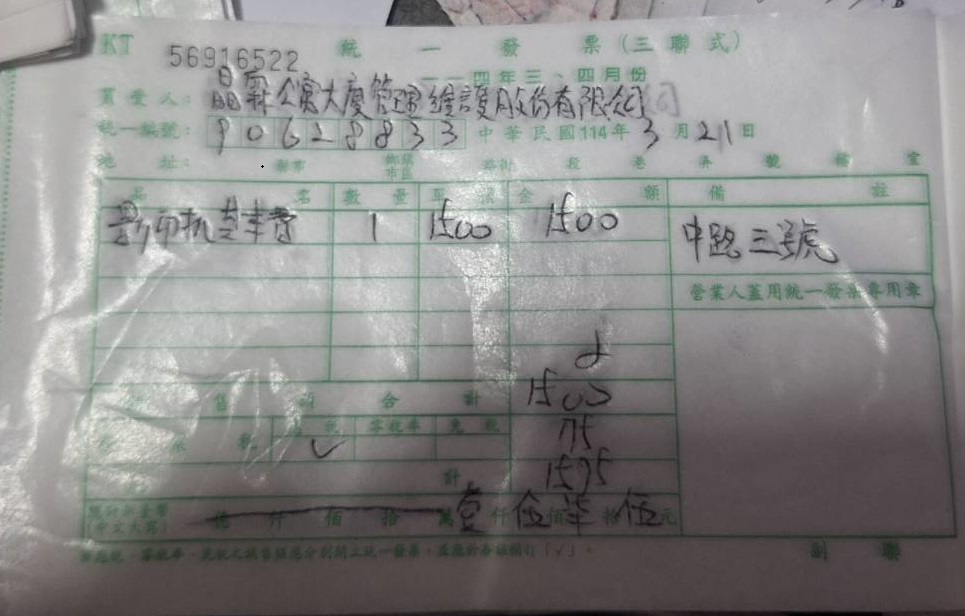 KT 56916522 統一發票(三聯式)
一一四年三、四月份
買受人: 晶霖公寓大廈管理維護股份有限公司
統一編號: 90628833 中華民國114年3月21日
地址: 縣市 鄉鎮市區 路街 段 巷 弄 號 樓 室
品名 數量 單價 金額 備註
影印机基本費 1 1500 1500 中路三號
營業人蓋用統一發票專用章
銷售額合計 1500
營業稅 應稅 零稅率 免稅 75
✓
總計 1575
總計新臺幣
(中文大寫) 億仟佰拾萬壹仟伍佰柒拾伍元
副聯